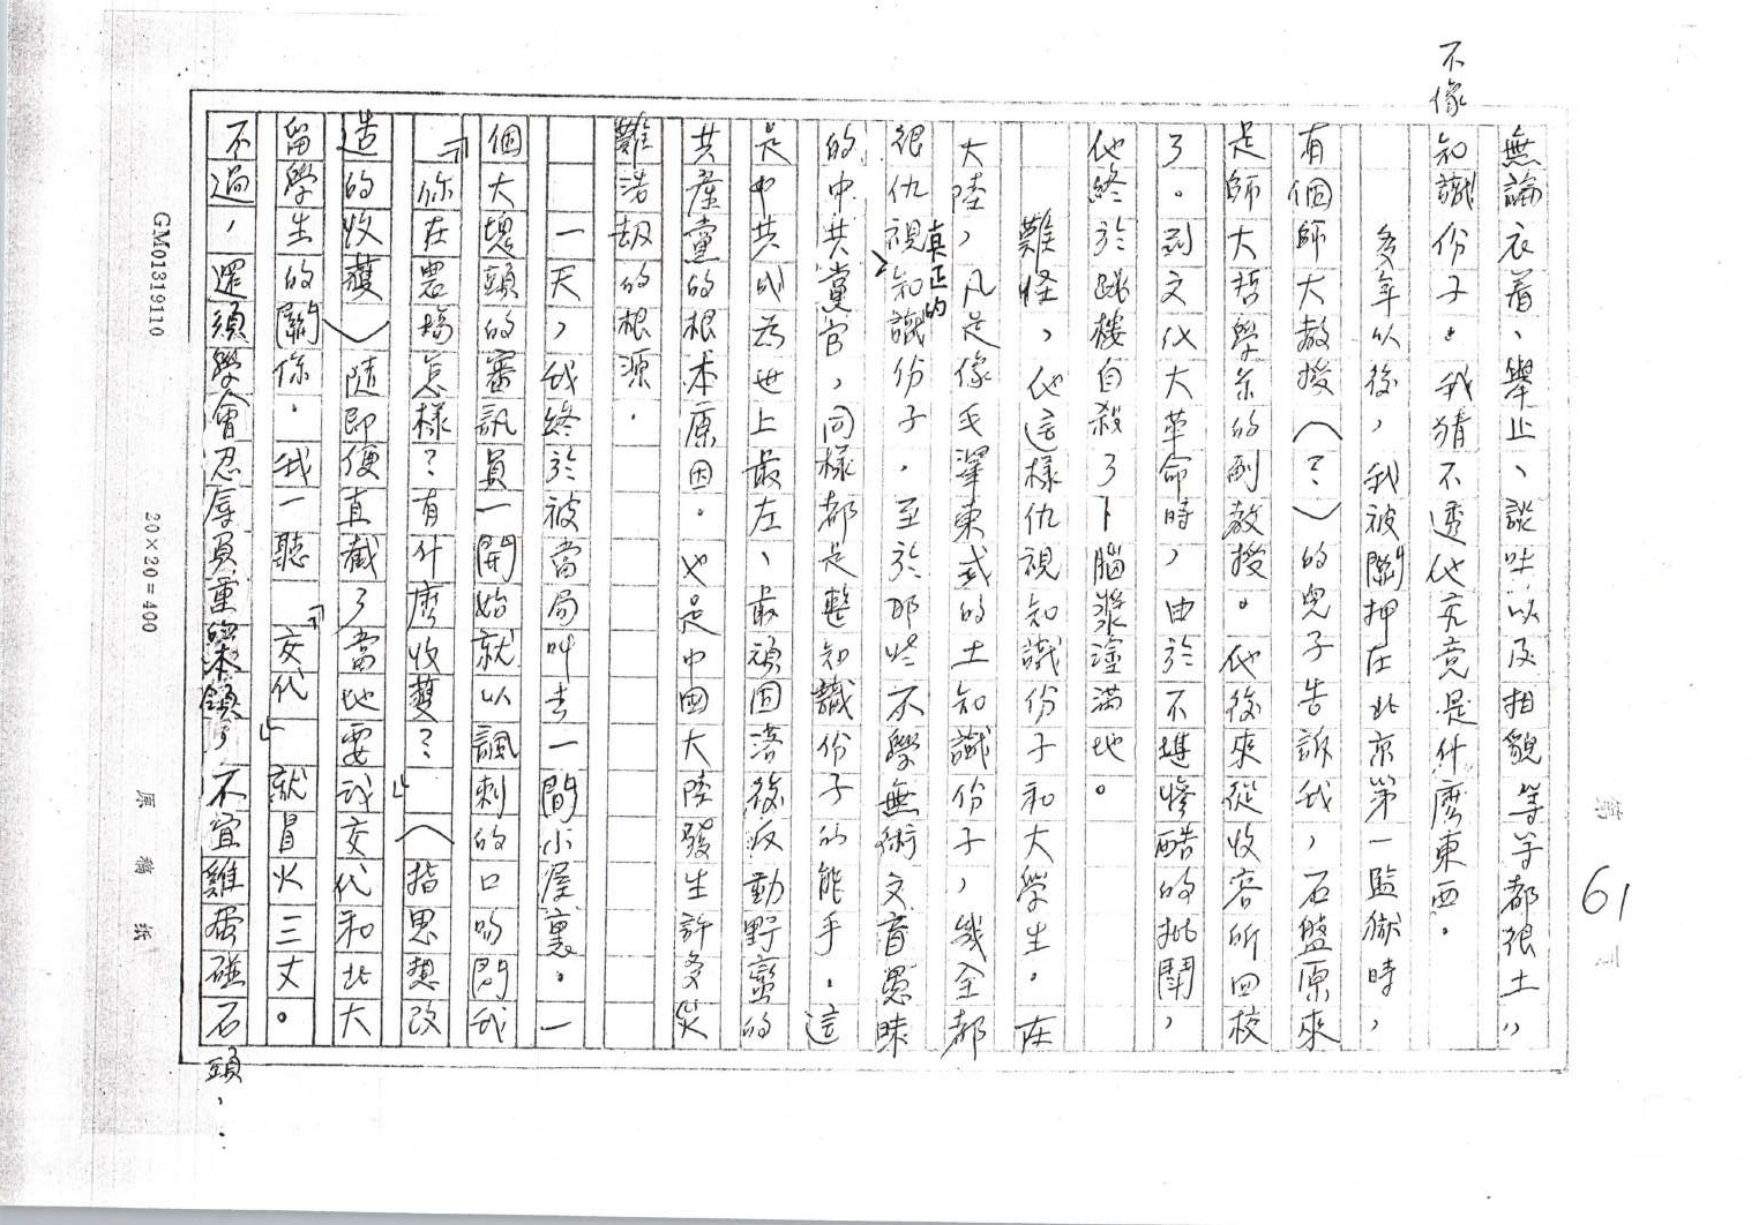 無論衣着、舉止、談吐以及相貌等等都很土，
不像
知識份子。我猜不透他究竟是什麼東西。
多年以後，我被關押在北京第一監獄時，
有個師大教授（？）的兒子告訴我，石盤原來
是師大哲學系的副教授。他後來從收容所回校
了。到文化大革命時，由於不堪慘酷的批鬥，
他終於跳樓自殺了──腦漿塗滿地。
難怪，他這樣仇視知識份子和大學生。在
大陸，凡是像毛澤東式的土知識份子，幾全都
真正的
很仇視知識份子。至於那些不學無術文盲愚昧
的中共黨官，同樣都是整知識份子的能手。這
是中共成為世上最左、最頑固落後反動野蠻的
共產黨的根本原因。也是中國大陸發生許多災
難浩劫的根源。
一天，我終於被當局叫去一間小屋裏。一
個大塊頭的審訊員一開始就以諷刺的口吻問我
『你在農場怎樣？有什麼收獲？』（指思想改
造的收獲）隨即便直截了當地要我交代和北大
留學生的關係。我一聽『交代』就冒火三丈。
不過，還須學會忍辱負重的本領，不宜雞蛋碰石頭。
GM01319110
20×20=400
原稿紙
61